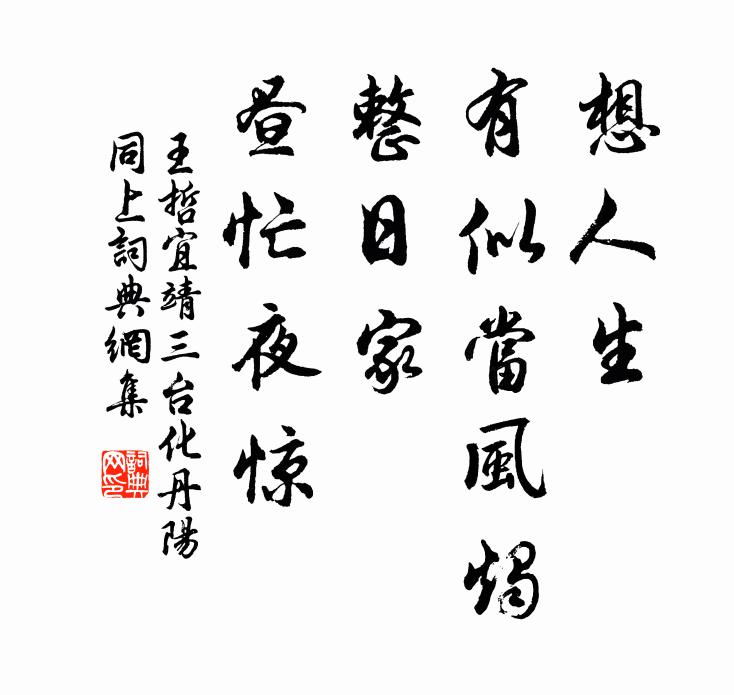 想人生
有似當風燭
整日家
昼忙夜惊
王哲宜靖三台化丹陽
同上詞典網集
詞典
网印